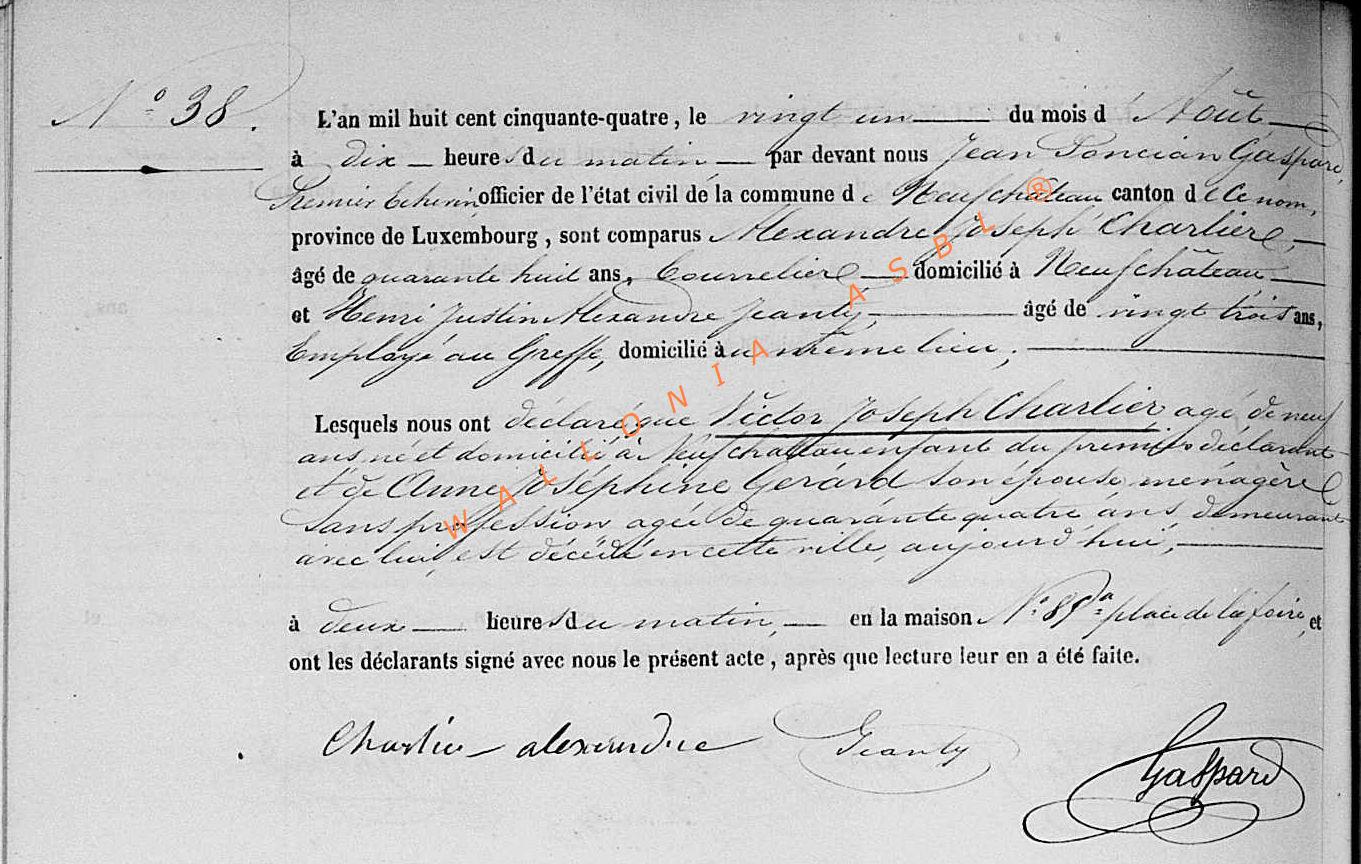 N° 38.
L'an mil huit cent cinquante-quatre, le vingt un du mois d'Août
à dix heures du matin par devant nous Jean Poncian Gaspard,
Premier Echevin, officier de l'état civil de la commune de Neufchâteau canton de Ce nom,
province de Luxembourg, sont comparus Alexandre Joseph Charlier,
âgé de quarante huit ans, Bourrelier domicilié à Neufchâteau
et Henri Justin Alexandre Jeanty, âgé de vingt trois ans,
Employé au Greffe, domicilié au même lieu;
Lesquels nous ont déclaré que Victor Joseph Charlier agé de neuf
ans né et domicilié à Neufchâteau enfant du premier déclarant
et de Anne Joséphine Gerard son épouse, ménagère
sans profession agée de quarante quatre ans demeurant
avec lui, est décédé en cette ville, aujourd'hui,
à deux heures du matin, en la maison place de la foire, et
ont les déclarants signé avec nous le présent acte, après que lecture leur en a été faite.
Charlier alexandre Jeanty Gaspard
WALLONIA ASBL ®